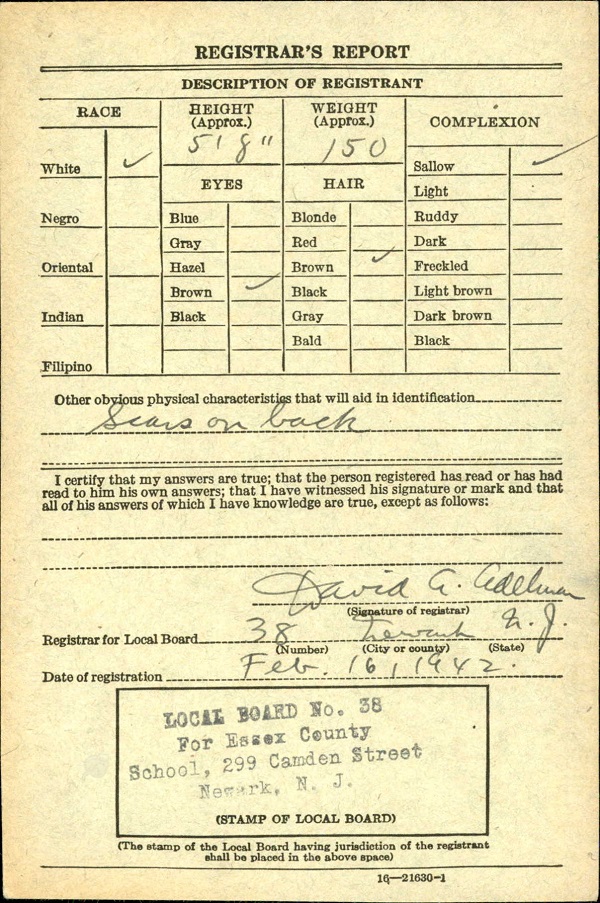 REGISTRAR'S REPORT
DESCRIPTION OF REGISTRANT
RACE
HEIGHT (Approx.)
WEIGHT (Approx.)
COMPLEXION
5' 8"
150
White ✓
Sallow ✓
EYES
HAIR
Light
Negro
Blue
Blonde
Ruddy
Gray
Red
Dark
Oriental
Hazel
Brown ✓
Freckled
Brown ✓
Black
Light brown
Indian
Black
Gray
Dark brown
Bald
Black
Filipino
Other obvious physical characteristics that will aid in identification
Scars on back
I certify that my answers are true; that the person registered has read or has had
read to him his own answers; that I have witnessed his signature or mark and that
all of his answers of which I have knowledge are true, except as follows:
David A. Adelman
(Signature of registrar)
Registrar for Local Board 38 Newark N. J.
(Number) (City or county) (State)
Date of registration Feb. 16, 1942.
LOCAL BOARD No. 38
For Essex County
School, 299 Camden Street
Newark, N. J.
(STAMP OF LOCAL BOARD)
(The stamp of the Local Board having jurisdiction of the registrant
shall be placed in the above space)
16—21630-1